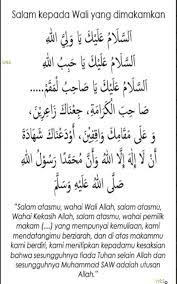 Salam kepada Wali yang dimakamkan
اَلسَّلَامُ عَلَيْكَ يَا وَلِيَّ اللهِ
اَلسَّلَامُ عَلَيْكَ يَا حَبِيْبَ اللهِ
اَلسَّلَامُ عَلَيْكَ يَا صَاحِبَ الْمَقَامِ......
صَاحِبَ الْكَرَامَةِ، جِئْنَاكَ زَائِرِيْنَ،
وَ عَلَى مَقَامِكَ وَاقِفِيْنَ، أَوْدَعْنَاكَ شَهَادَةَ
أَنْ لَا إِلٰهَ إِلَّا اللهُ وَأَنَّ مُحَمَّدًا رَسُوْلُ اللهِ
صَلَّى اللهُ عَلَيْهِ وَسَلَّمَ
"Salam atasmu, wahai Wali Allah, salam atasmu,
Wahai Kekasih Allah, salam atasmu, wahai pemilik
makam (....) yang mempunyai kemuliaan, kami
mendatangimu berziarah, dan di atas makammu
kami berdiri, kami menitipkan kepadamu kesaksian
bahwa sesungguhnya tiada Tuhan selain Allah dan
sesungguhnya Muhammad SAW adalah utusan
Allah."